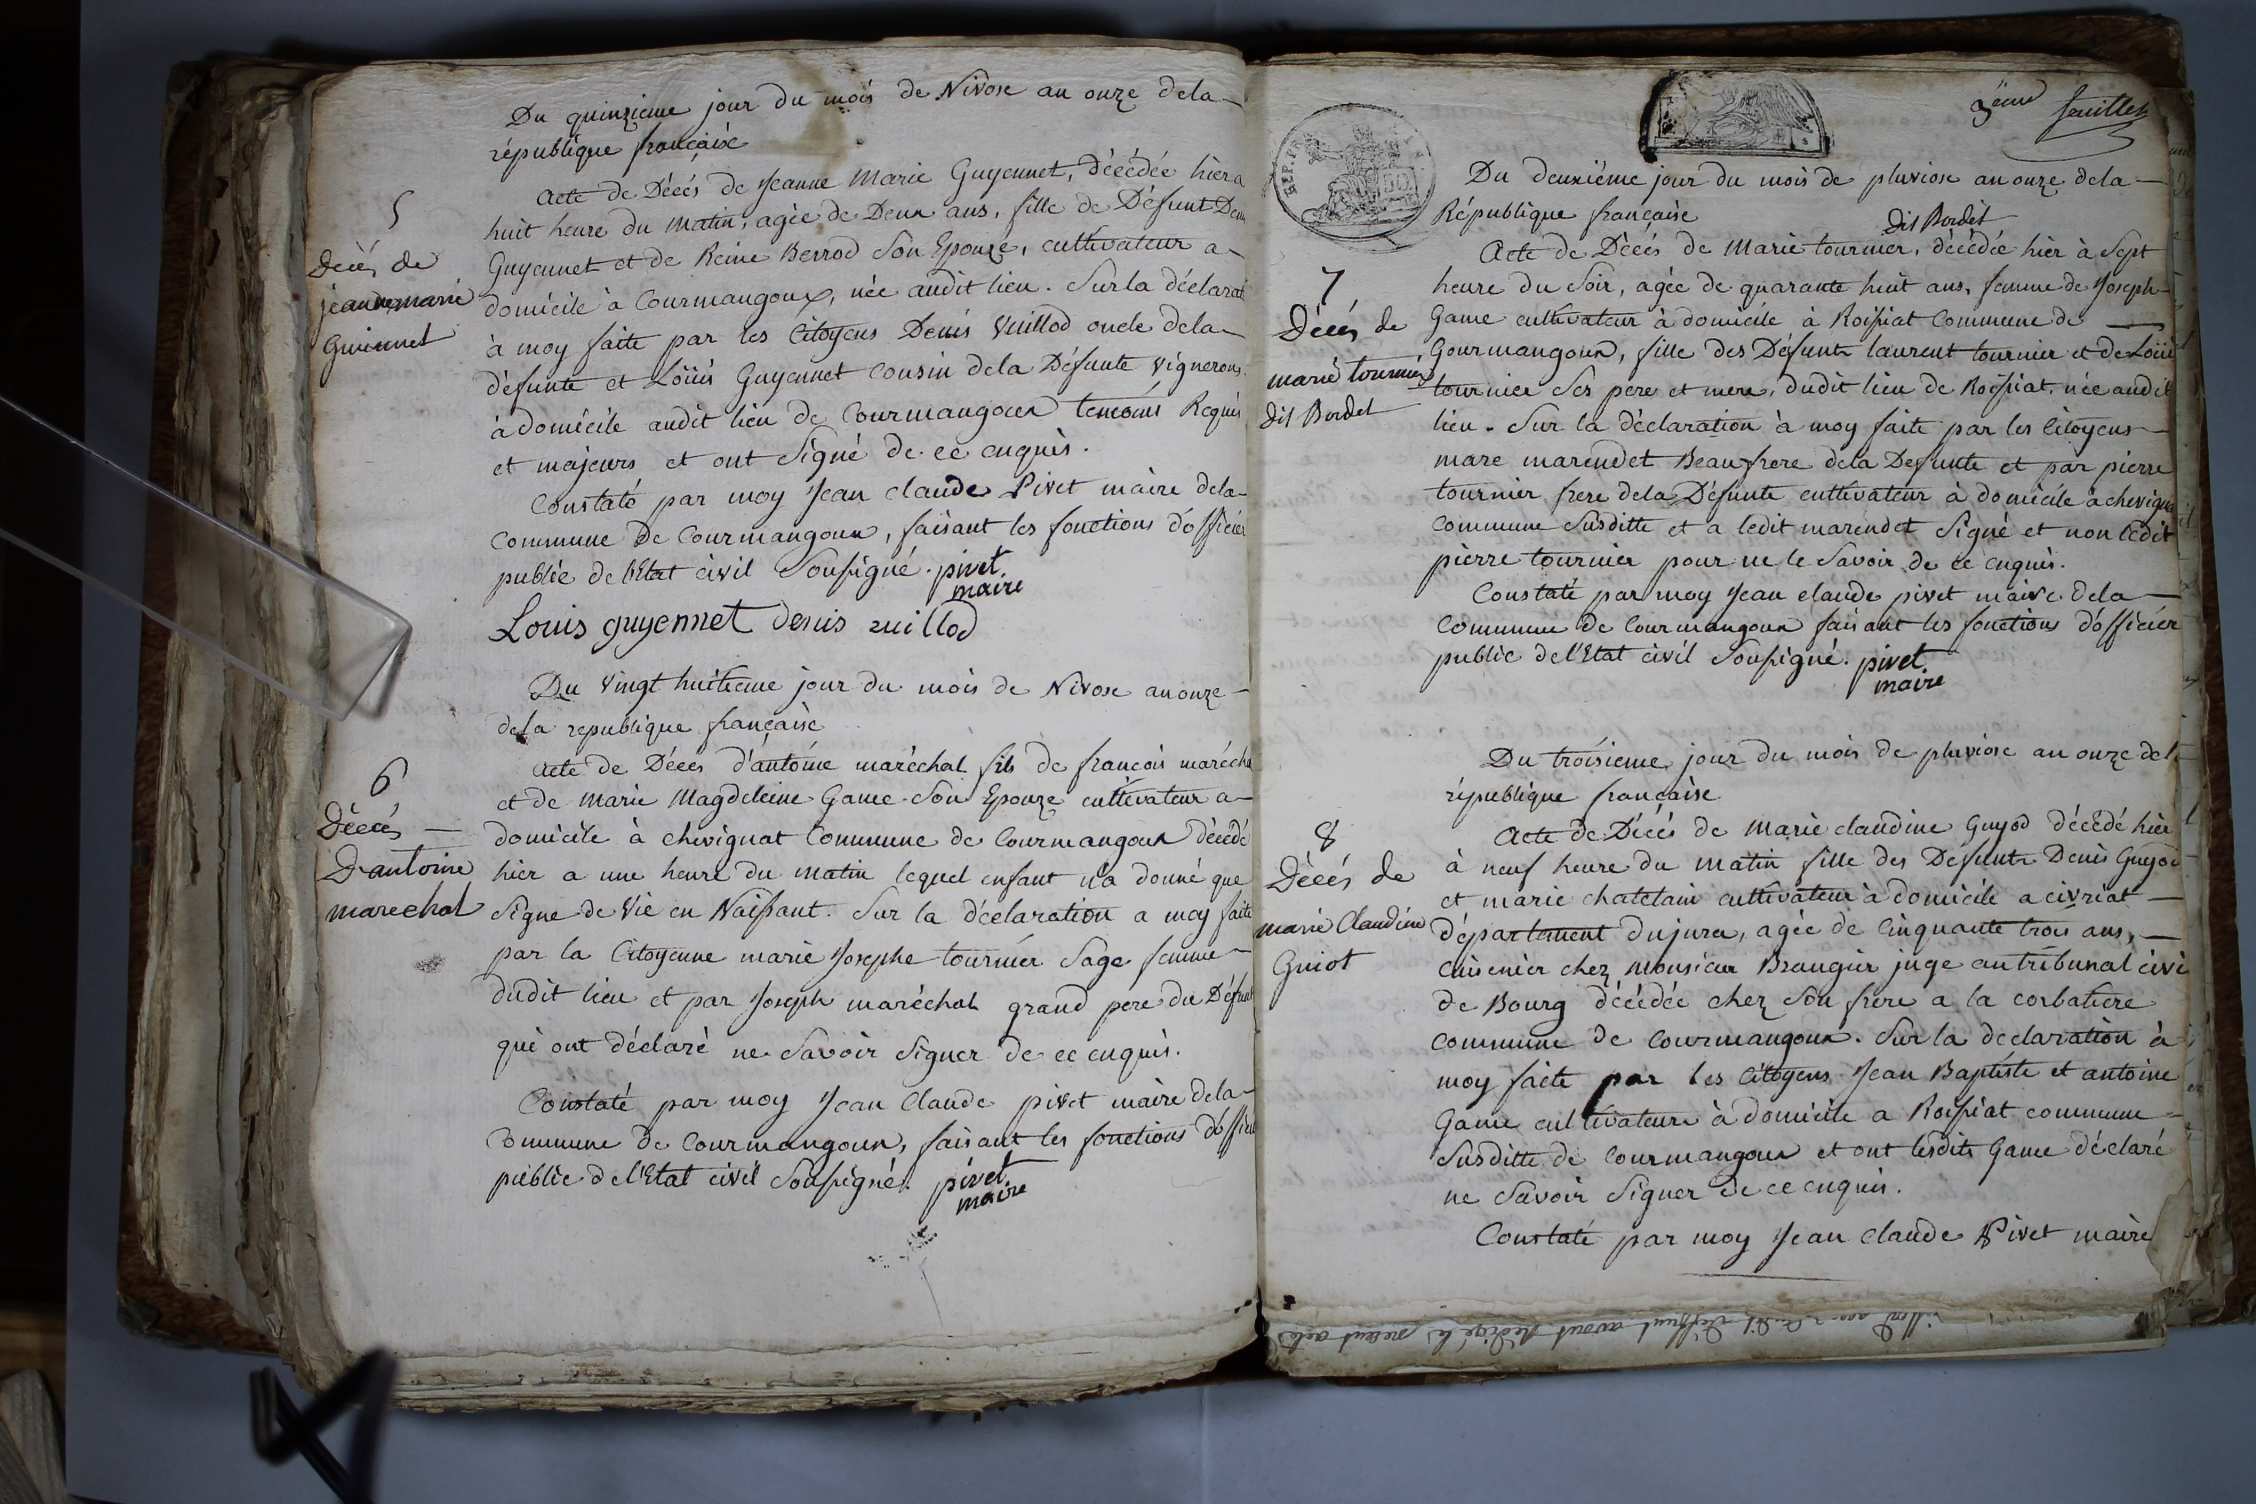 Du quinzieme jour du mois de Nivose an onze dela
république française
5
Décés de
jeanne marie
Guiennet
Acte de Décés de Jeanne Marie Guyennet, décédée hier a
huit heure du matin, agée de Deux ans, fille de Défunt Denis
Guyennet et de Reine Berrod Son Epouze, cultivateur a
domicile à Courmangoux, née audit lieu. Sur la déclarati
à moy faite par les Citoyens Denis Vuillod oncle dela
défunte et Loüis Guyennet cousin dela Défunte Vignerons
à domicile audit lieu de Courmangoux temoins Requis
et majeurs et ont Signé de ce enquis.
Constaté par moy Jean Claude Pivet maire dela
commune de Courmangoux, faisant les fonctions d'officier
public de l'Etat civil Soussigné. pivet
maire
Louis guyennet denis vuillod
Du Vingt huitieme jour du mois de Nivose an onze
dela republique française
6
Décés
D'antoine
marechal
Acte de Décés d'antoine maréchal fils de francois marécha
et de Marie Magdeleine Game Son Epouze cultivateur a
domicile à chevignat Commune de Courmangoux décédé
hier a une heure du matin lequel enfant n'a donné que
Signe de Vie en Naissant. Sur la déclaration a moy faite
par la Citoyenne marie Josephe tournier Sage femme
dudit lieu et par Joseph maréchal grand pere du Défunt
qui ont déclaré ne Savoir Signer de ce enquis.
Constaté par moy Jean Claude pivet maire dela
Commune de Courmangoux, faisant les fonctions d'officie
public de l'Etat civil Soussigné. pivet
maire
3eme feuillet
REP. FRA
Du deuxiéme jour du mois de pluviose an onze dela
République française
dit Bordet
7
Décés de
marie tournier
dit Bordet
Acte de Décés de Marie tournier, décédée hier à Sept
heure du Soir, agée de quarante huit ans, femme de Joseph
Game cultivateur à domicile à Roissiat Commune de
Courmangoux, fille des Défunts laurent tournier et de Loüise
tournier Ses pere et mere, dudit lieu de Roissiat, née audit
lieu. Sur la déclaration à moy faite par les Citoyens
marc marendet Beaufrere dela Defunte et par pierre
tournier frere dela Défunte cultivateur à domicile à chevigna
Commune Susditte et a ledit marendet Signé et non ledit
pierre tournier pour ne le Savoir de ce enquis.
Constaté par moy Jean claude pivet maire dela
Commune de Courmangoux faisant les fonctions d'officier
public de l'Etat civil Soussigné. pivet
maire
Du troisieme jour du mois de pluviose an onze dela
république française
8
Décés de
marie Claudine
Guiot
Acte de Décés de Marie claudine Guyod décédé hier
à neuf heure du matin fille des Défunts Denis Guyod
et marie chatelain cultivateur à domicile a civriat
département du jura, agée de Cinquante trois ans,
cuisinier chez Monsieur Brangier juge au tribunal civi
de Bourg décédée chez Son frere a la corbatiere
Commune de Courmangoux. Sur la declaration à
moy faite par les Citoyens Jean Baptiste et antoine
Game cultivateurs à domicile a Roissiat commune
Susditte de Courmangoux et ont lesdits Game déclaré
ne Savoir Signer de ce enquis.
Constaté par moy Jean Claude Pivet maire